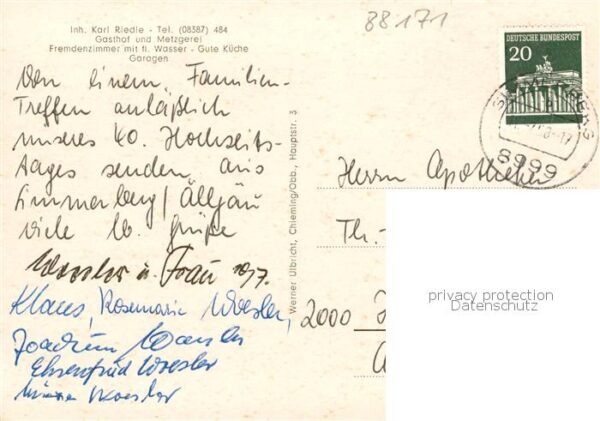 Inh. Karl Riedle - Tel. (08387) 484
Gasthof und Metzgerei
Fremdenzimmer mit fl. Wasser - Gute Küche
Garagen
88171
DEUTSCHE BUNDESPOST
20
8999
Von einem Familien-
Treffen anläßlich
unseres 40. Hochzeits-
tages senden aus
Simmerberg/Allgäu
viele lb. Grüße
Woesler u. Frau
Klaus, Rosemarie Woesler,
Joachim Woesler
Ehrenfried Woesler
Woesler
Werner Ulbricht, Chieming/Obb., Hauptstr. 3
Herrn Apotheker
Th.-
2000
privacy protection
Datenschutz